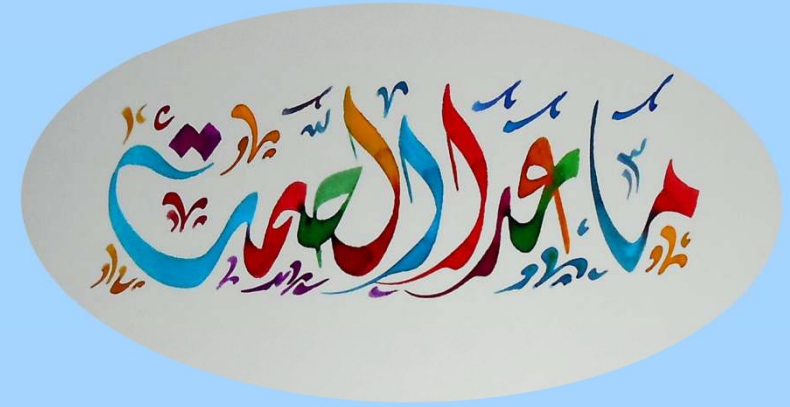 ما عدا الصمت